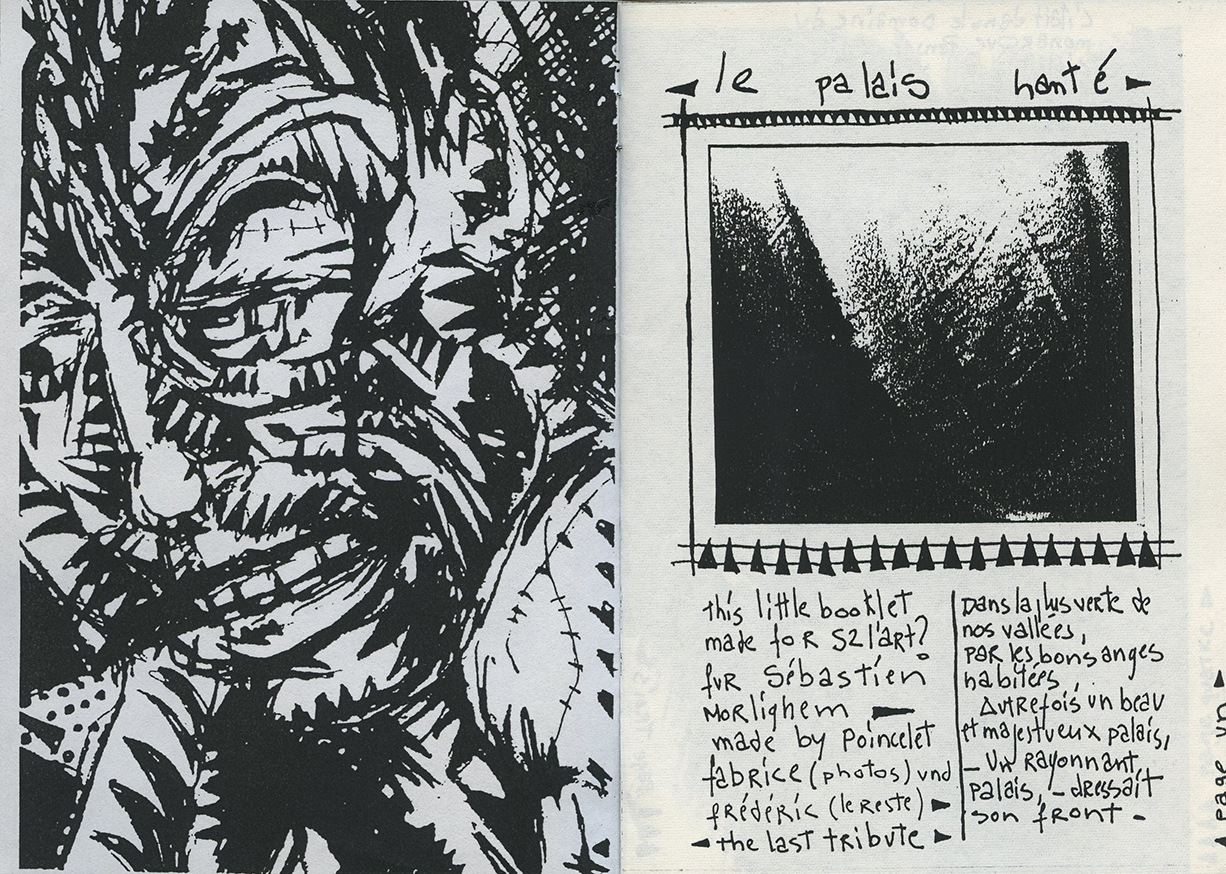 le palais hanté
this little booklet
made foR S2 l'aRt?
fuR Sébastien
MoRlighem
made by Poincelet
fabrice (photos) und
fRédéRic (le Reste)
the last tRibute
Dans la plus verte de
nos vallées,
paR les bons anges
habitées,
AutRefois un beau
et majestueux palais,
_ Un Rayonnant
palais, _ dRessait
son fRont -
page un